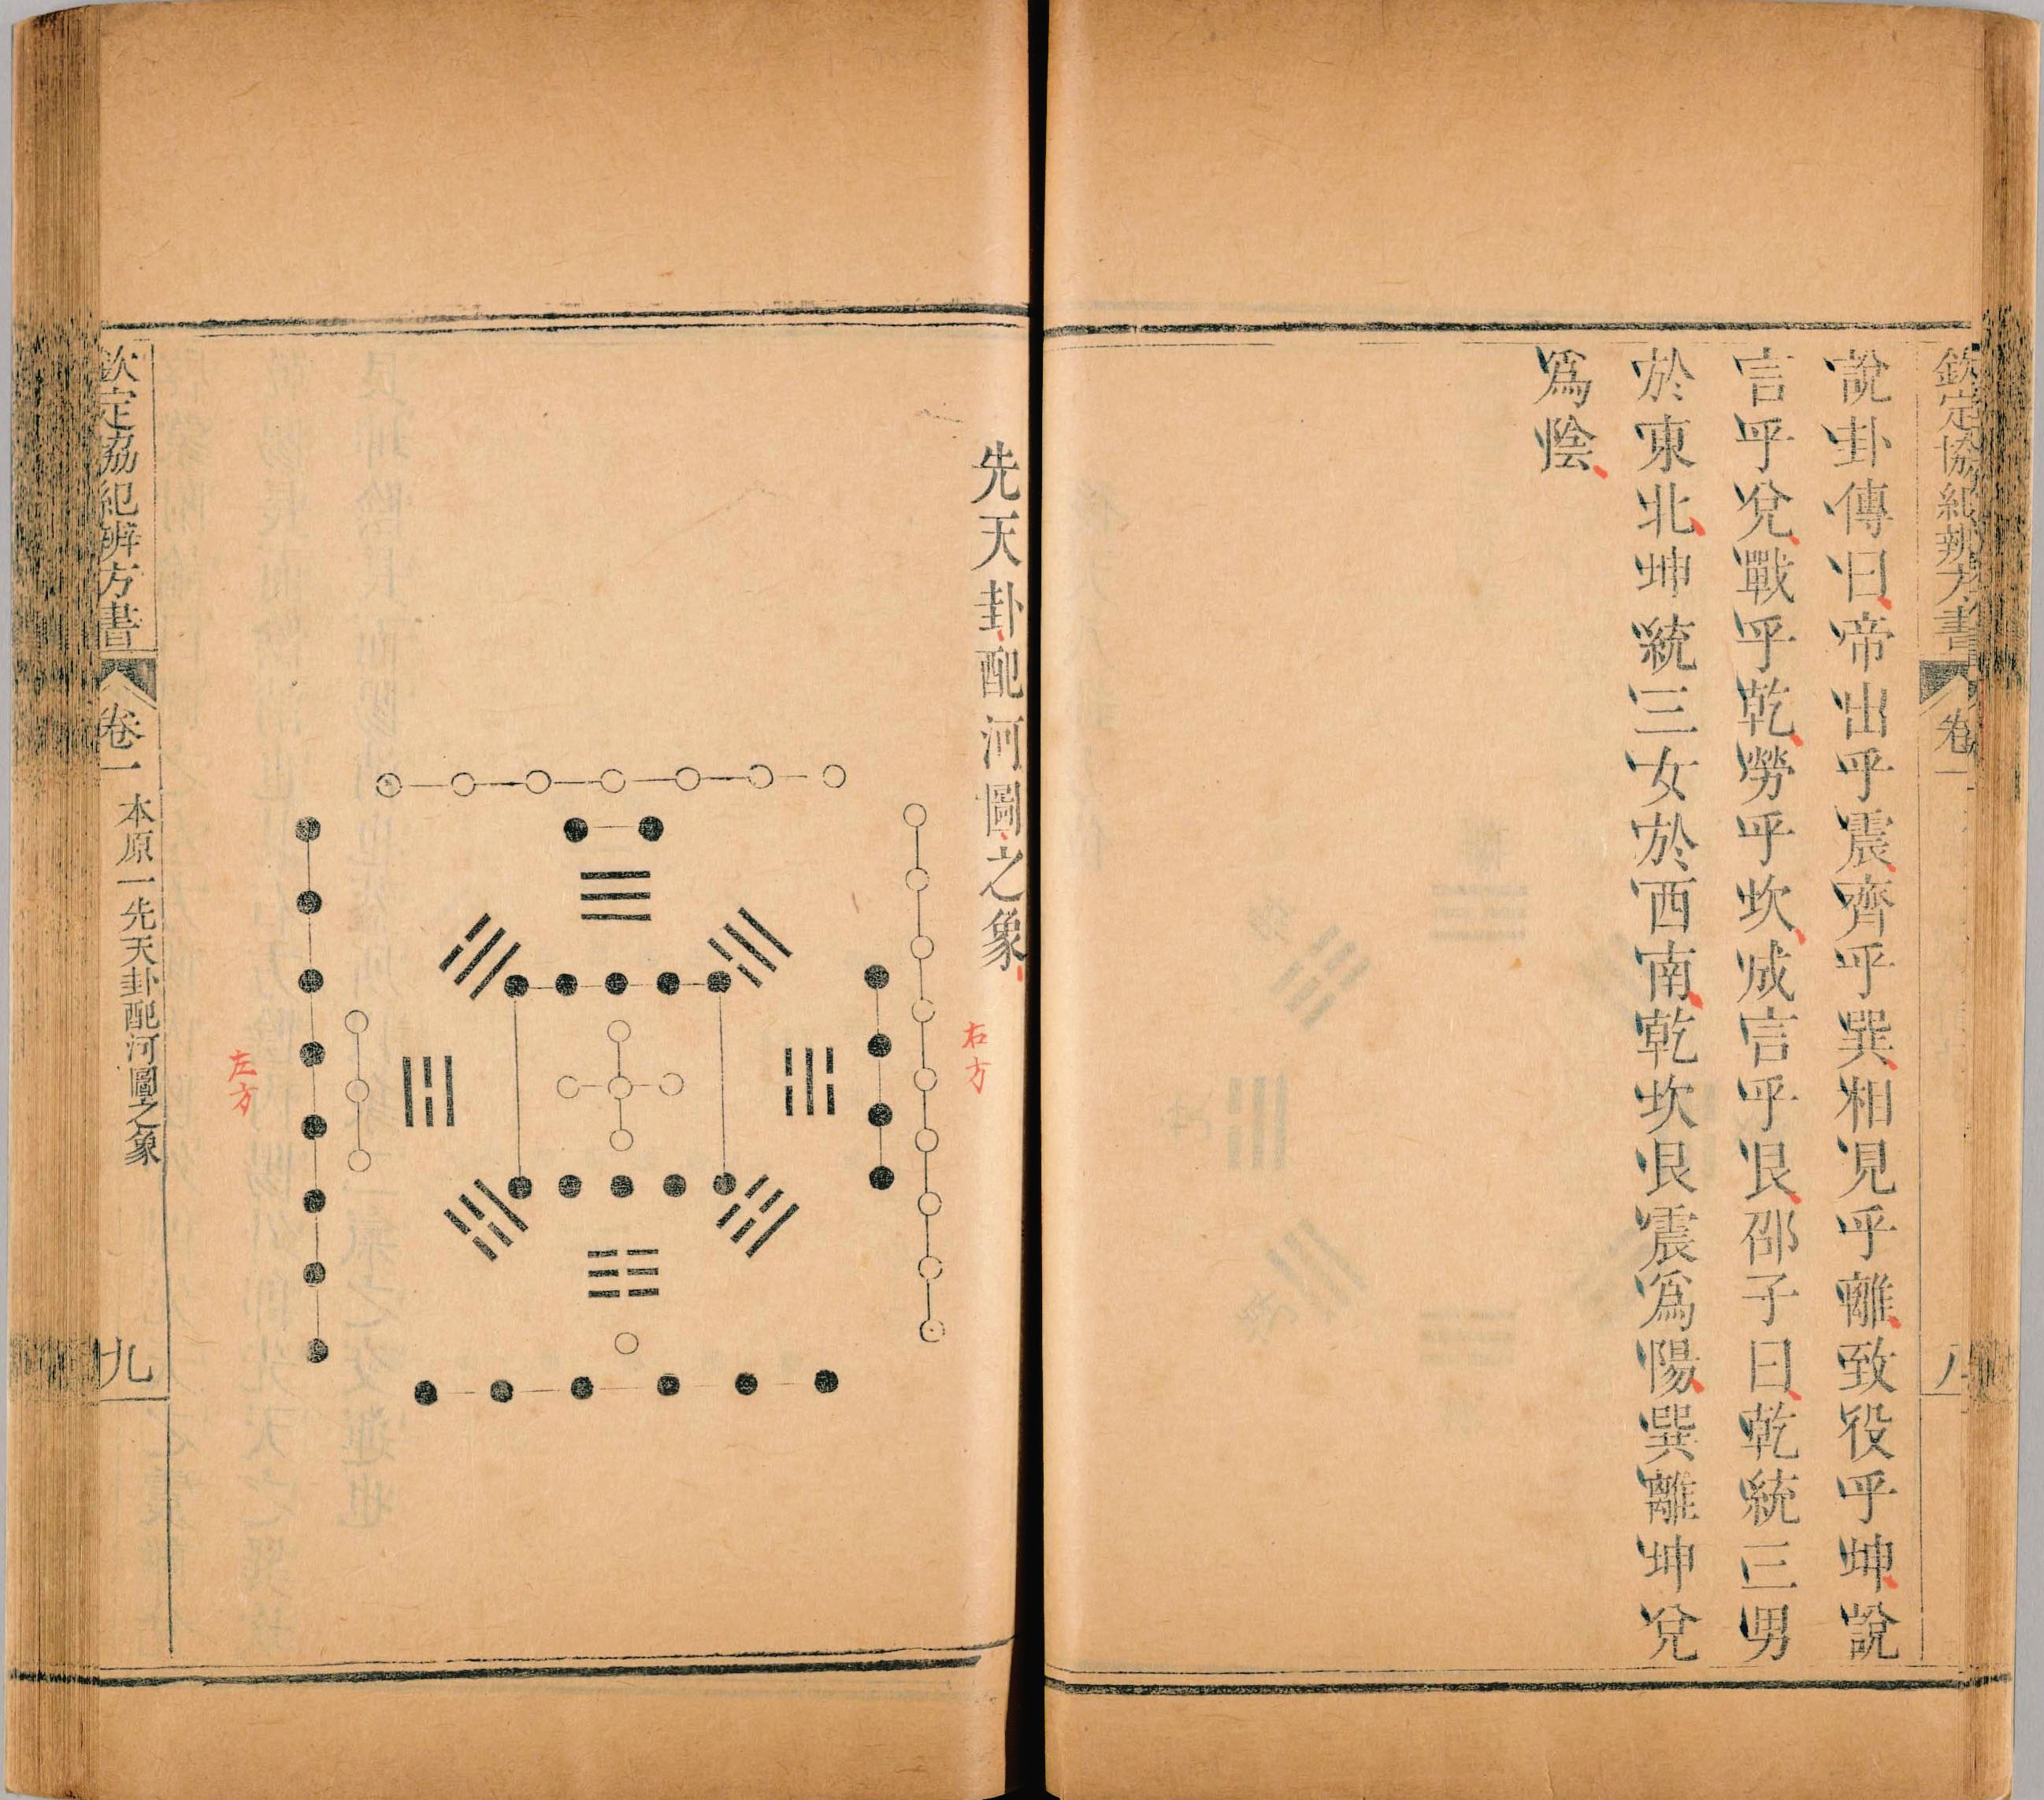 欽定協紀辨方書 卷一 八
說卦傳曰帝出乎震齊乎巽相見乎離致役乎坤說
言乎兌戰乎乾勞乎坎成言乎艮邵子曰乾統三男
於東北坤統三女於西南乾坎艮震爲陽巽離坤兌
爲陰
先天卦配河圖之象
右方
左方
欽定協紀辨方書 卷一 本原一先天卦配河圖之象 九